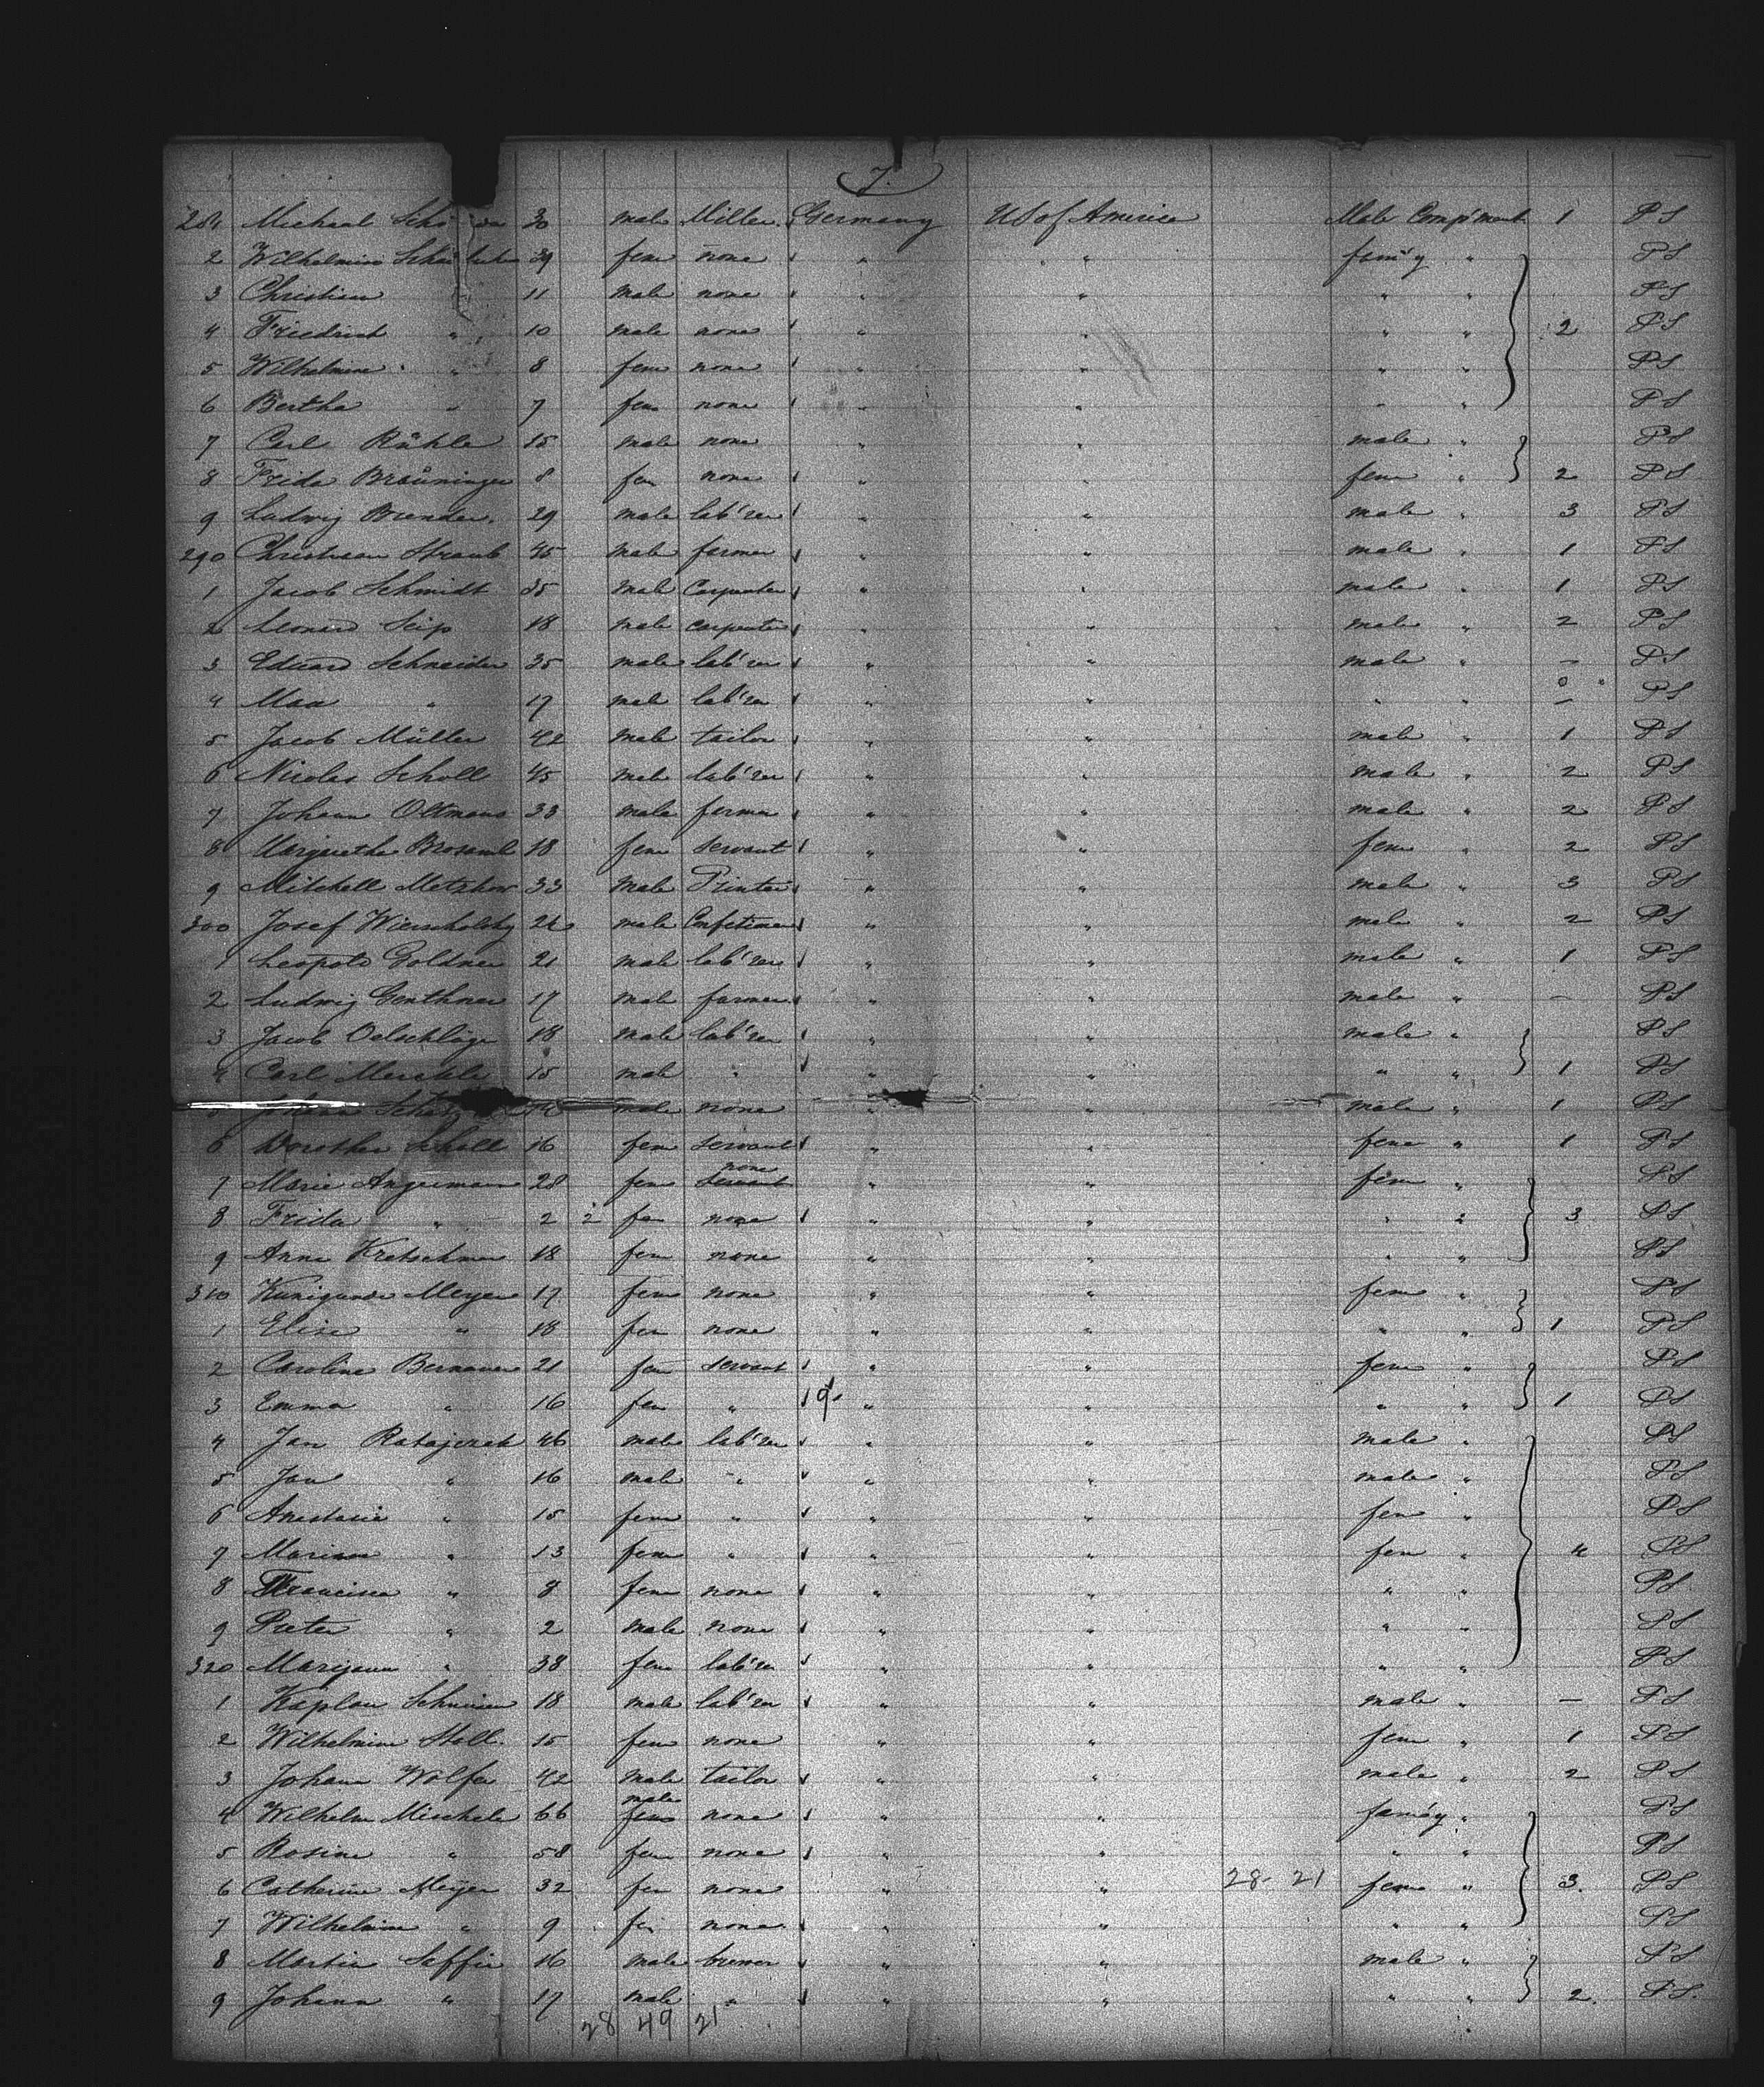 7.
281 Michael 30 male Miller. Germany U S of America Male Comp'ment 1 PS
2 Wilhelmine 39 fem none " " fam'y " PS
3 Christian " 11 male none " " " " PS
4 Friedrich " 10 male none " " " " 2 PS
5 Wilhelmine " 8 fem none " " " " PS
6 Bertha " 7 fem none " " " " PS
7 Carl Rühle 15 male none " " male " PS
8 Frida Bräuninger 8 fem none " " fem " 2 PS
9 Ludwig Brender. 29 male lab'rer " " male " 3 PS
290 Christian Straub 45 male farmer " " male " 1 PS
1 Jacob Schmidt 35 male Carpenter " " male " 1 PS
2 Leonard Seip 18 male carpenter " " male " 2 PS
3 Eduard Schneider 35 male lab'rer " " male " — PS
4 Max " 17 male lab'rer " " " " — PS
5 Jacob Müller 42 male tailor " " male " 1 PS
6 Nicolas Scholl 45 male lab'rer " " male " 2 PS
7 Johann Oltmans 33 male farmer " " male " 2 PS
8 Margaretha 18 fem servant " " fem " 2 PS
9 Mitchell 33 male Printer " " male " 3 PS
300 Josef 24 male " " male " 2 PS
1 Leopold Goldner 21 male lab'rer " " male " 1 PS
2 Ludwig Genthner 17 male farmer " " male " — PS
3 Jacob Oelschläger 18 male lab'rer " " male " PS
4 Carl Merckle 15 male " " " " " 1 PS
male none " " male " 1 PS
6 Dorothea Scholl 16 fem servant " " fem " 1 PS
7 Marie Angermann 28 fem none servant " " fem " PS
8 Frida " 2 2 fem none " " " " 3 PS
9 Anna Kretschmer 18 fem none " " " " PS
310 Kunigunde Meyer 17 fem none " " fem " PS
1 Elise " 18 fem none " " " " 1 PS
2 Caroline Bernauer 21 fem servant " " fem " PS
3 Emma " 16 fem " 9 " " " " 1 PS
4 Jan Ratajczak 46 male lab'rer " " male " PS
5 Jan " 16 male " " " male " PS
6 Anastasia " 15 fem " " " fem " PS
7 Mariann " 13 fem " " " fem " 4 PS
8 Francisca " 8 fem none " " " " PS
9 Pieter " 2 male none " " " " PS
320 Marijann " 38 fem lab'rer " " " " PS
1 Kaplan 18 male lab'rer " " male " — PS
2 Wilhelmine Stoll. 15 fem none " " fem " 1 PS
3 Johann Wolfer 42 male tailor " " male " 2 PS
4 Wilhelm Mischele 66 male fem none " " fam'y " PS
5 Rosine " 58 fem none " " " " PS
6 Catherine Meyer 32 fem none " " 28- 21 fem " 3. PS
7 Wilhelmine " 9 fem none " " " " PS
8 Martin Saffir 16 male brewer " " male " PS
9 Johann " 17 male " " " " " 2. PS.
28 49 21